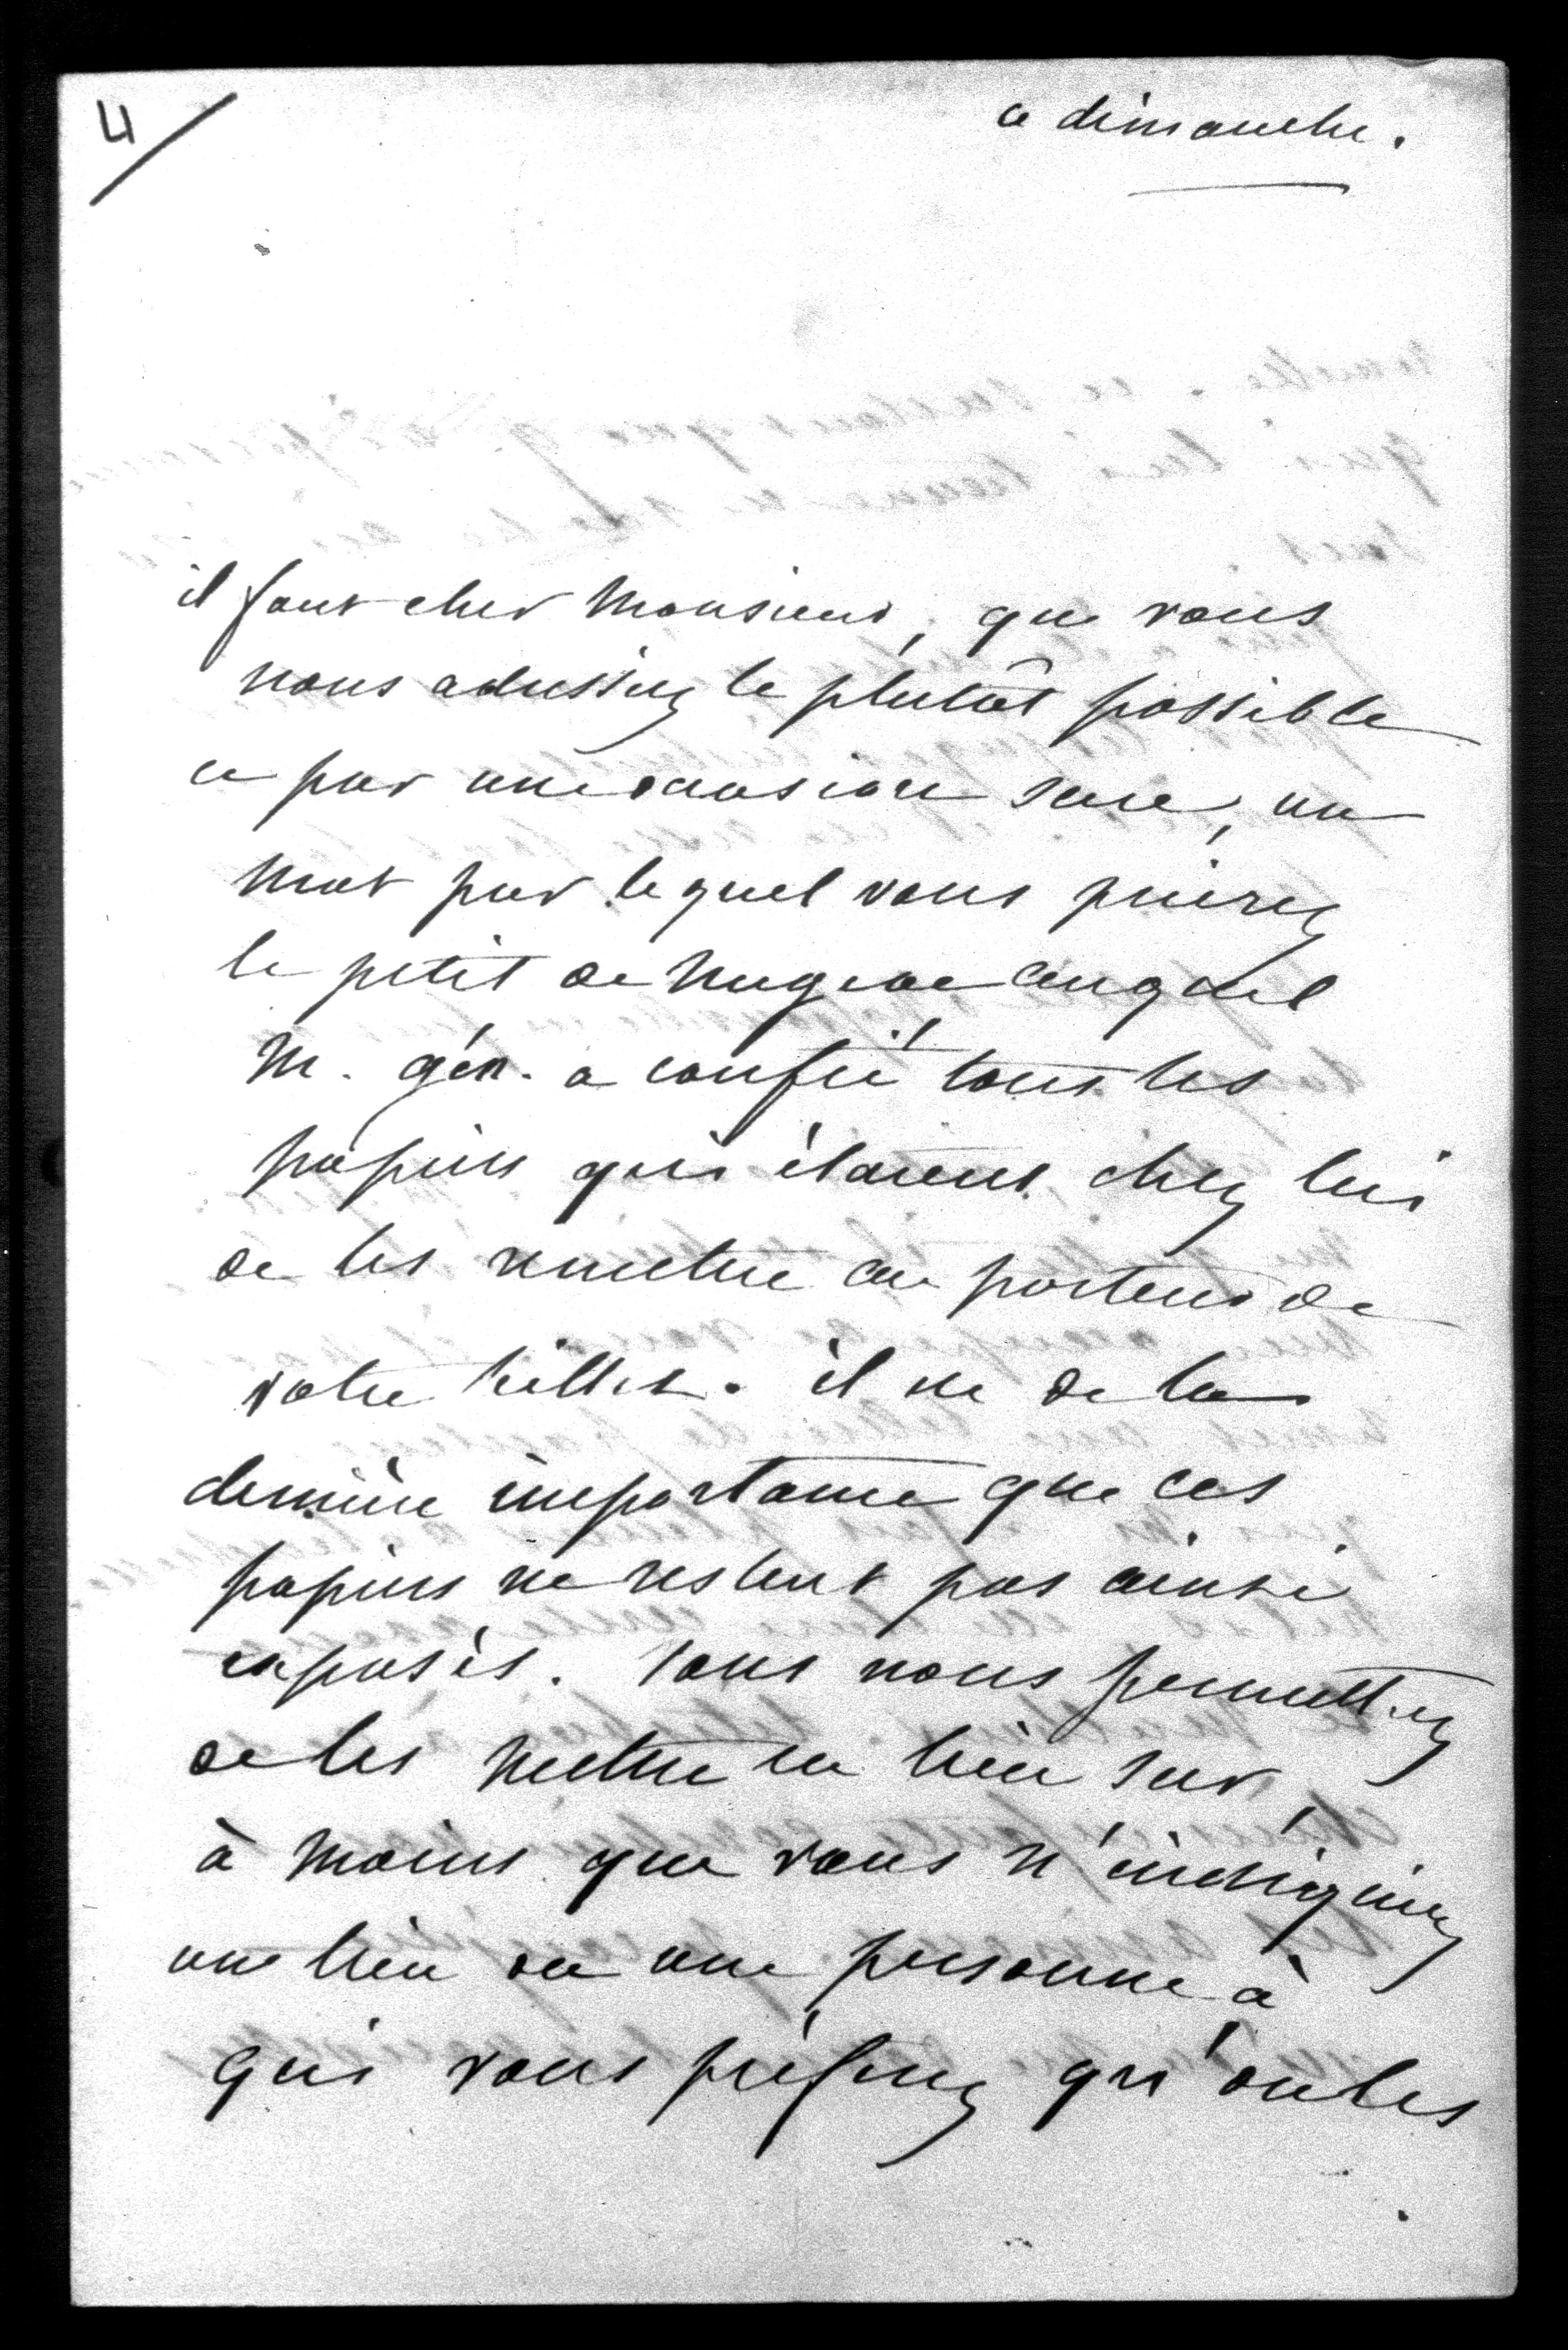 4/
ce dimanche.
il faut cher Monsieur, que vous
nous adressiez le plutôt possible
et par une occasion sure, un
mot par lequel vous prierez
le petit de auquel
M. gén. a confié tous les
papiers qui étaient chez lui
de les remettre au porteur de
votre billet. il est de la
dernière importance que ces
papiers ne restent pas ainsi
exposés. vous nous permettrez
de les mettre en lieu sur,
à moins que vous n'indiquiez
un lieu ou une personne à
qui vous préférez qu'on les